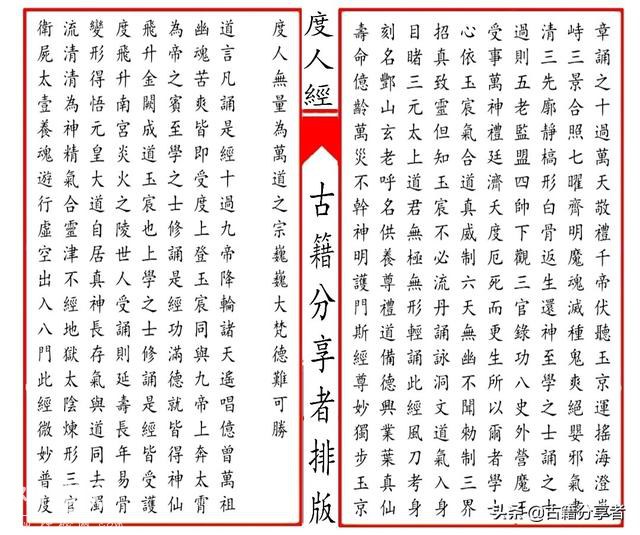 章誦之十過萬天敬禮千帝伏聽玉京運搖海澄
峙三景合照七曜齊明魔魂滅種鬼爽絕嬰邪氣
清三先廓靜槁形白骨返生還神至學之士誦之
過則五老監盟四帥下觀三官錄功八史外營魔王
受事萬神禮廷濟天度厄死而更生所以爾
心依玉宸氣合道真威制六天無幽不聞勑制三界
招真致靈但知玉宸不必流丹誦詠洞文道氣入身
目睹三元太上道君無極無形輕誦此經風刀考身
刻名酆山玄老呼名供養尊禮道備德興業葉真仙
壽命億齡萬災不幹神明護門斯經尊妙獨步玉京
度人經
古籍分享者排版
度人無量為萬道之宗巍巍大梵德難可勝
道言凡誦是經十過九帝降輪諸天遙唱億曾萬祖
幽魂苦爽皆即受度上登玉宸同與九帝上奔太霄
為帝之賓至學之士修誦是經功滿德就皆得神仙
飛升金闕成道玉宸也上學之士修誦是經皆受護
度飛升南宮炎火之陵世人受誦則延壽長年易骨
變形得悟元皇大道自居真神長存氣與道同去濁
流清清為神精氣合靈津不經地獄太陰煉形三官
衛屍太壹養魂遊行虛空出入八門此經微妙普度
头条 @古籍分享者